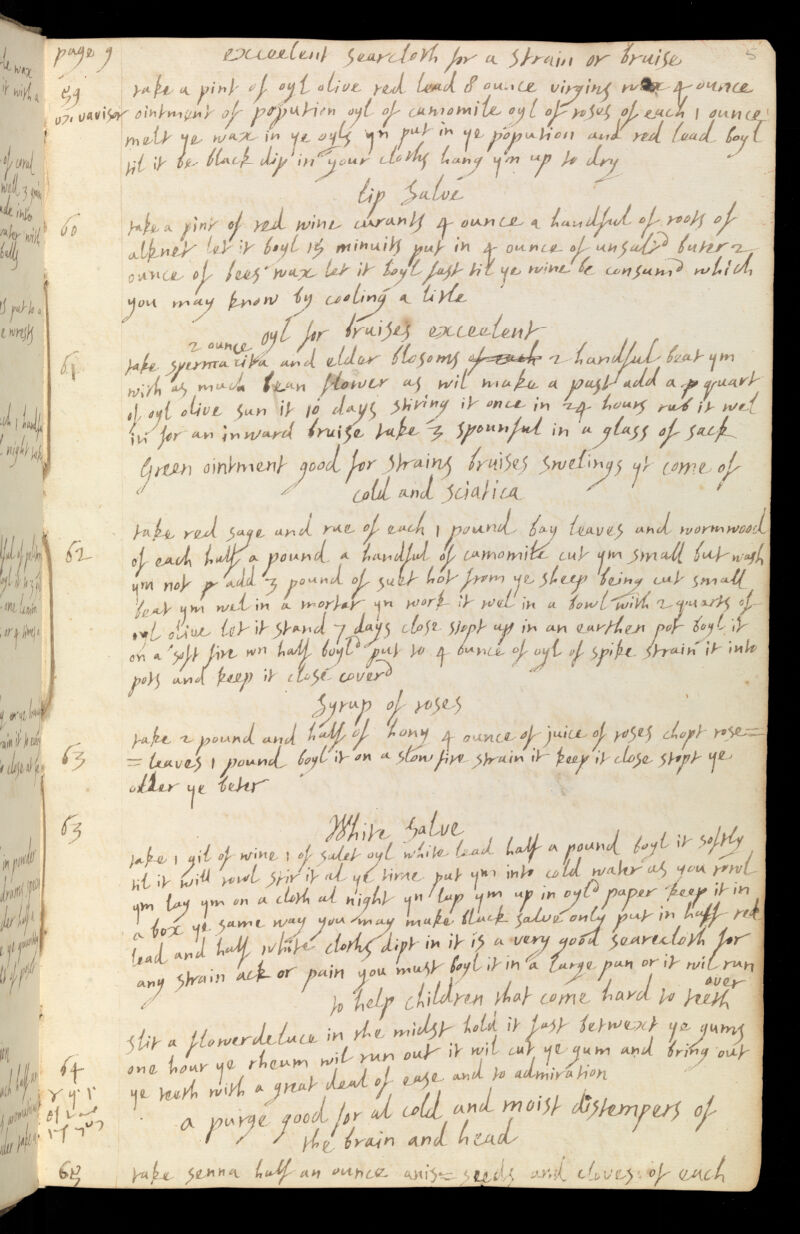 page 9 exceelent searcloth for a strain or bruise 5
59 take a pint of oyl olive red lead 8 ounce virgins wax 4 ounce
ointment of popution oyl of camomile oyl of roses of each 1 ounce
melt ye wax in ye oyls yn put in ye popution and red lead boyl
til it be black dip in your cloths hang ym up to dry
lip salve
60 take a pint of red wine curants 4 ounce a handful of roots of
alknet let it boyl 15 minuits put in 4 ounce of unsaltd buter 2
ounce of bees wax let it boyl fast til ye wine be consumd which
you may know by cooling a litle
oyl for bruises exceelent
2 ounce
61 take spermacita and elder blosoms of each 2 handful beat ym
with as much bean flower as wil make a past add a quart
of oyl olive sun it 10 days stiring it once in 24 hours rub it wel
in for an inward bruise take 3 spounful in a glass of sack
Green ointment good for strains bruises swelings yt come of
cold and sciatica
62 take red sage and rue of each 1 pound bay leaves and wormwood
of each half a pound a handful of camomile cut ym small but wash
ym not add 3 pound of suet hot from ye sheep being cut small
beat ym wel in a mortar yn work it wel in a bowl with 2 quarts of
oyl olive let it stand 7 days close stopt up in an earthen pot boyl it
on a soft fire wn half boyld put to 4 ounce of oyl of spike strain it into
pots and keep it close coverd
Syrup of roses
63 take 2 pound and half of hony 4 ounce of juice of roses chopt rose=
=leaves 1 pound boyl it on a slow fire strain it keep it close stopt ye
older ye beter
White salve
63 take 1 gil of wine 1 of salet oyl white lead half a pound boyl it softly
til it will rowl stir it al ye time put ym into cold water as you rowl
ym lay ym on a cloth al night yn lap ym up in oyld paper keep it in
a box ye same way you may make black salve only put in half red
lead and half white cloths dipt in it is a very good searecloth for
any strain ack or pain you must boyl it in a large pan or it wil run
over
to help children that come hard to teeth
64 slit a flowerdeluce in the midst hold it fast betwext ye gums
one hour ye rheum wil run out it wil cut ye gum and bring out
ye teeth with a great deal of ease and to admiration
a purge good for al cold and moist distempers of
the brain and head
65 take senna half an ounce anis= seeds and cloves of each